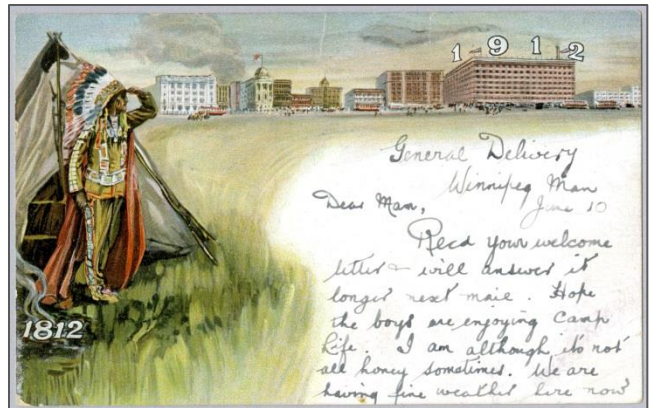 1912
General Delivery
Winnipeg Man
June 10
Dear Mam,
Recd your welcome
letter & will answer it
longer next mail. Hope
the boys are enjoying Camp
Life. I am although its not
all honey sometimes. We are
having fine weather here now
1812